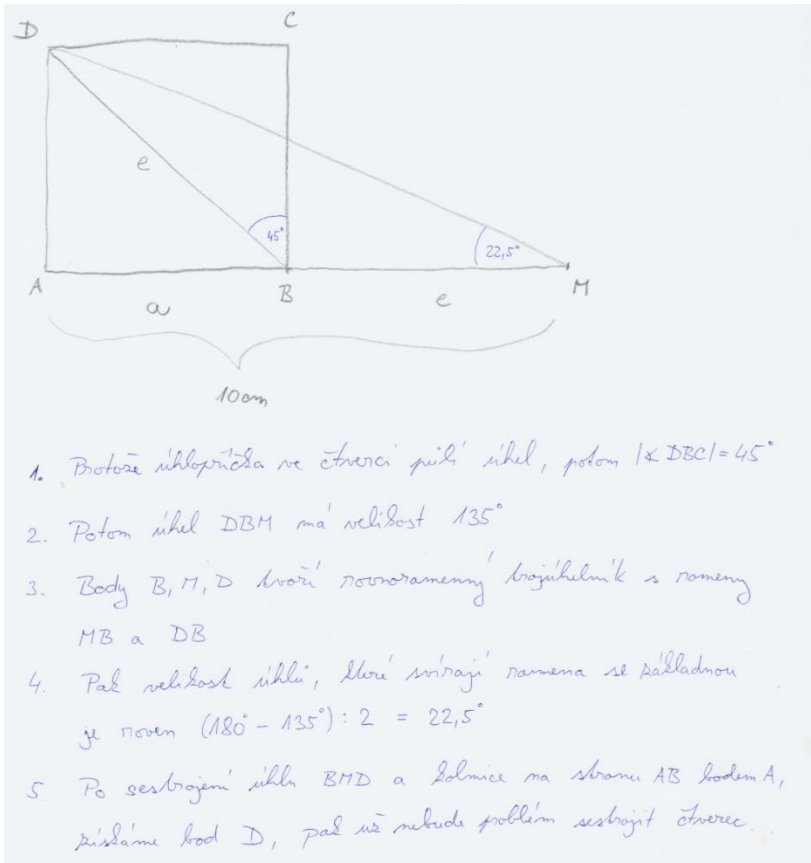 D
C
e
45°
22,5°
A
B
M
a
e
10cm
1. Protože úhlopříčka ve čtverci půlí úhel, potom |∢ DBC| = 45°
2. Potom úhel DBM má velikost 135°
3. Body B, M, D tvoří rovnoramenný trojúhelník s rameny
MB a DB
4. Pak velikost úhlů, které svírají ramena se základnou
je roven (180° - 135°) : 2 = 22,5°
5. Po sestrojení úhlu BMD a kolmice na stranu AB bodem A,
získáme bod D, pak už nebude problém sestrojit čtverec.